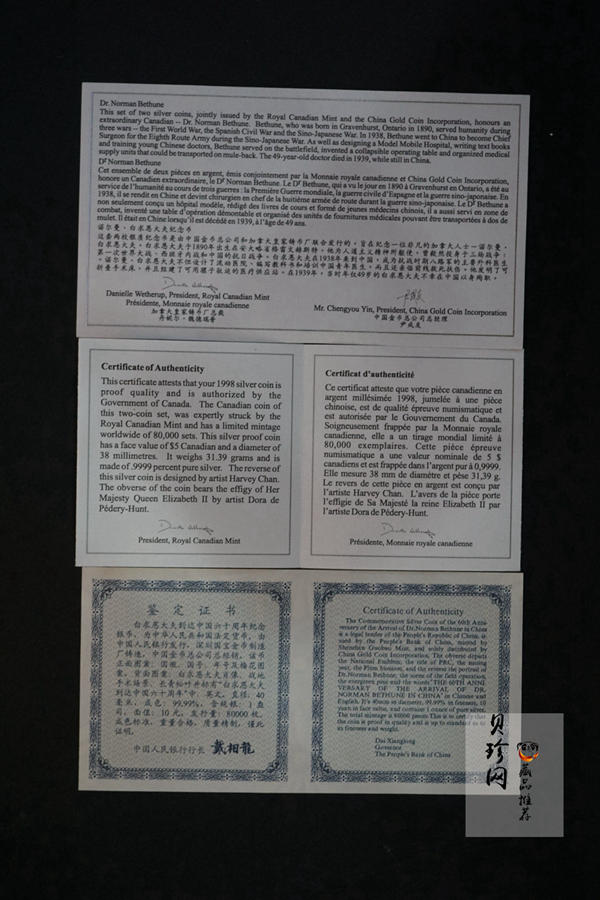 Dr. Norman Bethune
This set of two silver coins, jointly issued by the Royal Canadian Mint and the China Gold Coin Incorporation, honours an
extraordinary Canadian -- Dr. Norman Bethune. Bethune, who was born in Gravenhurst, Ontario in 1890, served humanity during
three wars -- the First World War, the Spanish Civil War and the Sino-Japanese War. In 1938, Bethune went to China to become Chief
Surgeon for the Eighth Route Army during the Sino-Japanese War. As well as designing a Model Mobile Hospital, writing text books
and training young Chinese doctors, Bethune served on the battlefield, invented a collapsible operating table and organized medical
supply units that could be transported on mule-back. The 49-year-old doctor died in 1939, while still in China.
Dr Norman Bethune
Cet ensemble de deux pièces en argent, émis conjointement par la Monnaie royale canadienne et China Gold Coin Incorporation,
honore un Canadien extraordinaire, le Dr Norman Bethune. Le Dr Bethune, qui a vu le jour en 1890 à Gravenhurst en Ontario, a été au
service de l'humanité au cours de trois guerres : la Première Guerre mondiale, la guerre civile d'Espagne et la guerre sino-japonaise. En
1938, il se rendit en Chine et devint chirurgien en chef de la huitième armée de route durant la guerre sino-japonaise. Le Dr Bethune a
non seulement conçu un hôpital modèle, rédigé des livres de cours et formé de jeunes médecins chinois, il a aussi servi en zone de
combat, inventé une table d'opération démontable et organisé des unités de fournitures médicales pouvant être transportées à dos de
mulet. Il était en Chine lorsqu'il est décédé en 1939, à l'âge de 49 ans.
诺尔曼·白求恩大夫纪念币
这套两枚银币纪念币是由中国金币总公司和加拿大皇家铸币厂联合发行的，旨在纪念一位非凡的加拿大人士—诺尔曼·
白求恩大夫。白求恩大夫于1890年出生在安大略省格雷文赫斯特。
Danielle Wetherup, President, Royal Canadian Mint
Présidente, Monnaie royale canadienne
加拿大皇家铸币厂总裁
丹妮尔·魏德瑞普
Mr. Chengyou Yin, President, China Gold Coin Incorporation
中国金币总公司总经理
尹成友
Certificate of Authenticity
This certificate attests that your 1998 silver coin is
proof quality and is authorized by the
Government of Canada. The Canadian coin of
this two-coin set, was expertly struck by the
Royal Canadian Mint and has a limited mintage
worldwide of 80,000 sets. This silver proof coin
has a face value of $5 Canadian and a diameter of
38 millimetres. It weighs 31.39 grams and is
made of .9999 percent pure silver. The reverse of
this silver coin is designed by artist Harvey Chan.
The obverse of the coin bears the effigy of Her
Majesty Queen Elizabeth II by artist Dora de
Pédery-Hunt.
President, Royal Canadian Mint
Certificat d'authenticité
Ce certificat atteste que votre pièce canadienne en
argent millésimée 1998, jumelée à une pièce
chinoise, est de qualité épreuve numismatique et
est autorisée par le Gouvernement du Canada.
Soigneusement frappée par la Monnaie royale
canadienne, elle a un tirage mondial limité à
80,000 exemplaires. Cette pièce épreuve
numismatique a une valeur nominale de 5 $
canadiens et est frappée dans l'argent pur à 0,9999.
Elle mesure 38 mm de diamètre et pèse 31,39 g.
Le revers de cette pièce en argent est conçu par
l'artiste Harvey Chan. L'avers de la pièce porte
l'effigie de Sa Majesté la reine Elizabeth II par
l'artiste Dora de Pédery-Hunt.
Présidente, Monnaie royale canadienne
鉴定证书
白求恩大夫到达中国六十周年纪念
银币，为中华人民共和国法定货币，由
中国人民银行发行，深圳国宝金币制造
厂铸造，中国金币总公司总经销。该币
正面图案：国徽、国号、年号及梅花图
案。背面图案：白求恩大夫肖像、战地
手术场景、
达中国六十周年"中、英文。直径：40
毫米，成色：99.99%，含纯银：1盎
司，面值：10元，发行量：80000枚。
成色标准，重量合格，质量精制，谨此
证明。
中国人民银行行长 戴相龍
Certificate of Authenticity
The Commemorative Silver Coin of the 60th Anni-
versary of the Arrival of Dr.Norman Bethune in China
is a legal tender of the People's Republic of China, is
sued by the People's Bank of China, minted by
Shenzhen Guobao Mint, and solely distributed by
China Gold Coin Incorporation. The obverse depicts
the National Emblem, the title of PRC, the issuing
year, the Plum blossom, and the reverse the portrait of
Dr.Norman Bethune, the scene of the field operation,
the evergreen pine and the words"THE 60TH ANNI-
VERSARY OF THE ARRIVAL OF DR.
NORMAN BETHUNE IN CHINA" in Chinese and
English. It's 40mm in diameter, 99.99% in fineness, 10
yuan in face value, and contains 1 ounce of pure silver.
The total mintage is 80000 pieces.This is to certify that
the coin is proof in quality and is up to standard as to
its fineness and weight.
Dai Xianglong
Governor
The People's Bank of China
贝珍网
藏品推荐